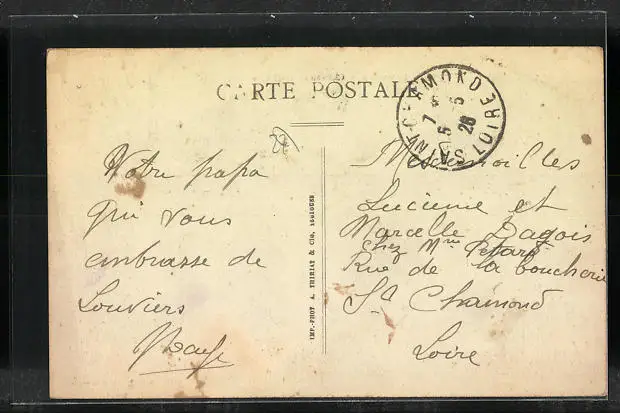 CARTE POSTALE
SAINT-CHAMOND LOIRE
7 5
5
26
Votre papa
qui vous
embrasse de
Louviers
IMP.-PHOT A. THIRIAT & CIE, TOULOUSE
Mesdemoiselles
Lucienne et
Marcelle Dagois
chez Mme
Rue de la boucherie
St Chamond
Loire